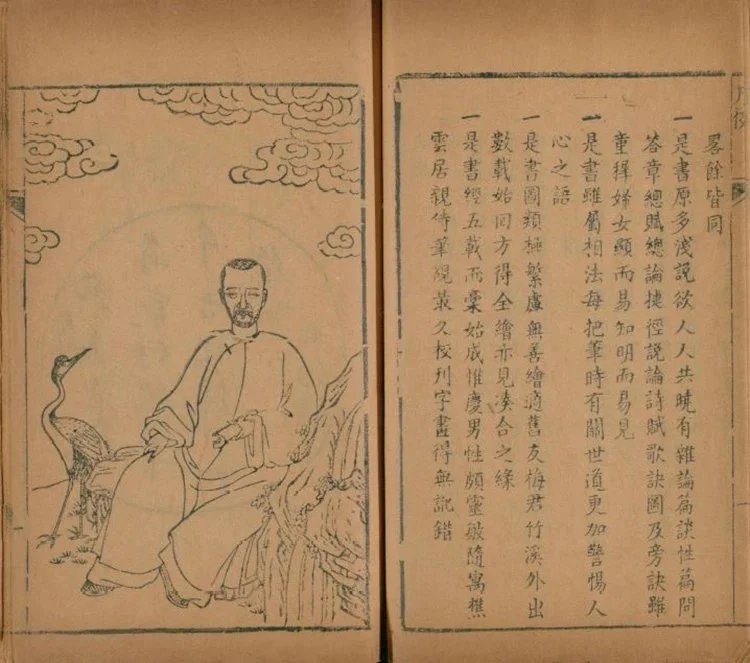 畧餘皆同
一是書原多淺說欲人人共曉有雜論篇談性篇問
答章總賦總論捷徑說論詩賦歌訣圖及旁訣雖
童穉婦女顯而易知明而易見
一是書雖屬相法每把筆時有關世道更加警惕人
心之語
一是書圖類極繁慮無善繪適舊友梅君竹溪外出
數載始回方得全繪亦見湊合之緣
一是書經五載而稾始成惟慶男性頗靈敏隨寓樵
雲居親侍筆硯最久校刊字畫得無訛錯